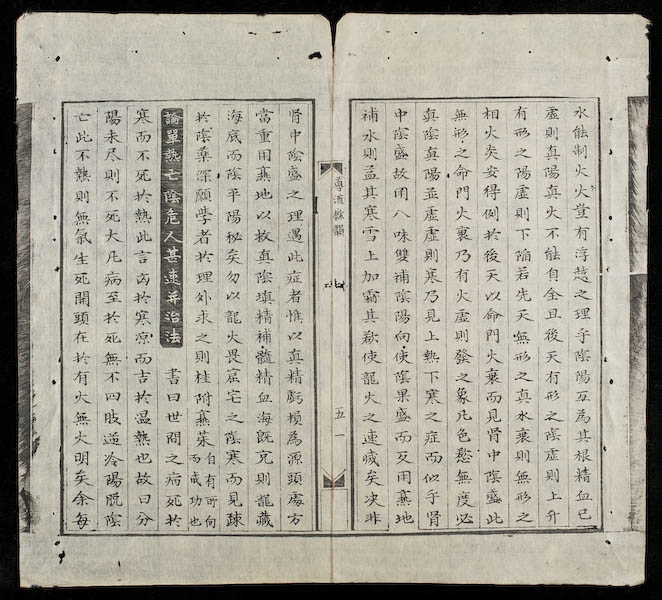 水能制火火豈有浮越之理乎陰陽互為其根精血已
虛則真陽真火不能自全且後天有形之陰虛則上升
有形之陽虛則下陷若先天無形之真水衰則無形之
相火炎安得例於後天以命門火衰而見腎中陰盛此
無形之命門火裏乃有火虛則發之象凡色慾無度必
真陰真陽並虛虛則寒乃見上熱下寒之症而似乎腎
中陰盛故用八味雙補陰陽向使陰果盛而反用熹地
補水則益其寒雪上加霜其歘使龍火之速滅矣决非
尊道餘韻
五一
腎中陰盛之理遇此症者惟以真精虧損為源頭處方
當重用熹地以救真陰填精補髓精血海既充則龍藏
海底而陰平陽秘矣勿以龍火畏窟宅之陰寒而見疎
於陰藥深願學者於理外求之則桂附熹茱自有所向而成功也
論單熱亡陰危人甚速并治法 書曰世間之病死於
寒而不死於熱此言凶於寒凉而吉於温熱也故曰分
陽未尽則不死大凡病至於死無不四肢逆冷陽脫陰
亡此不熱則無氣生死関頭在於有火無火明矣余每